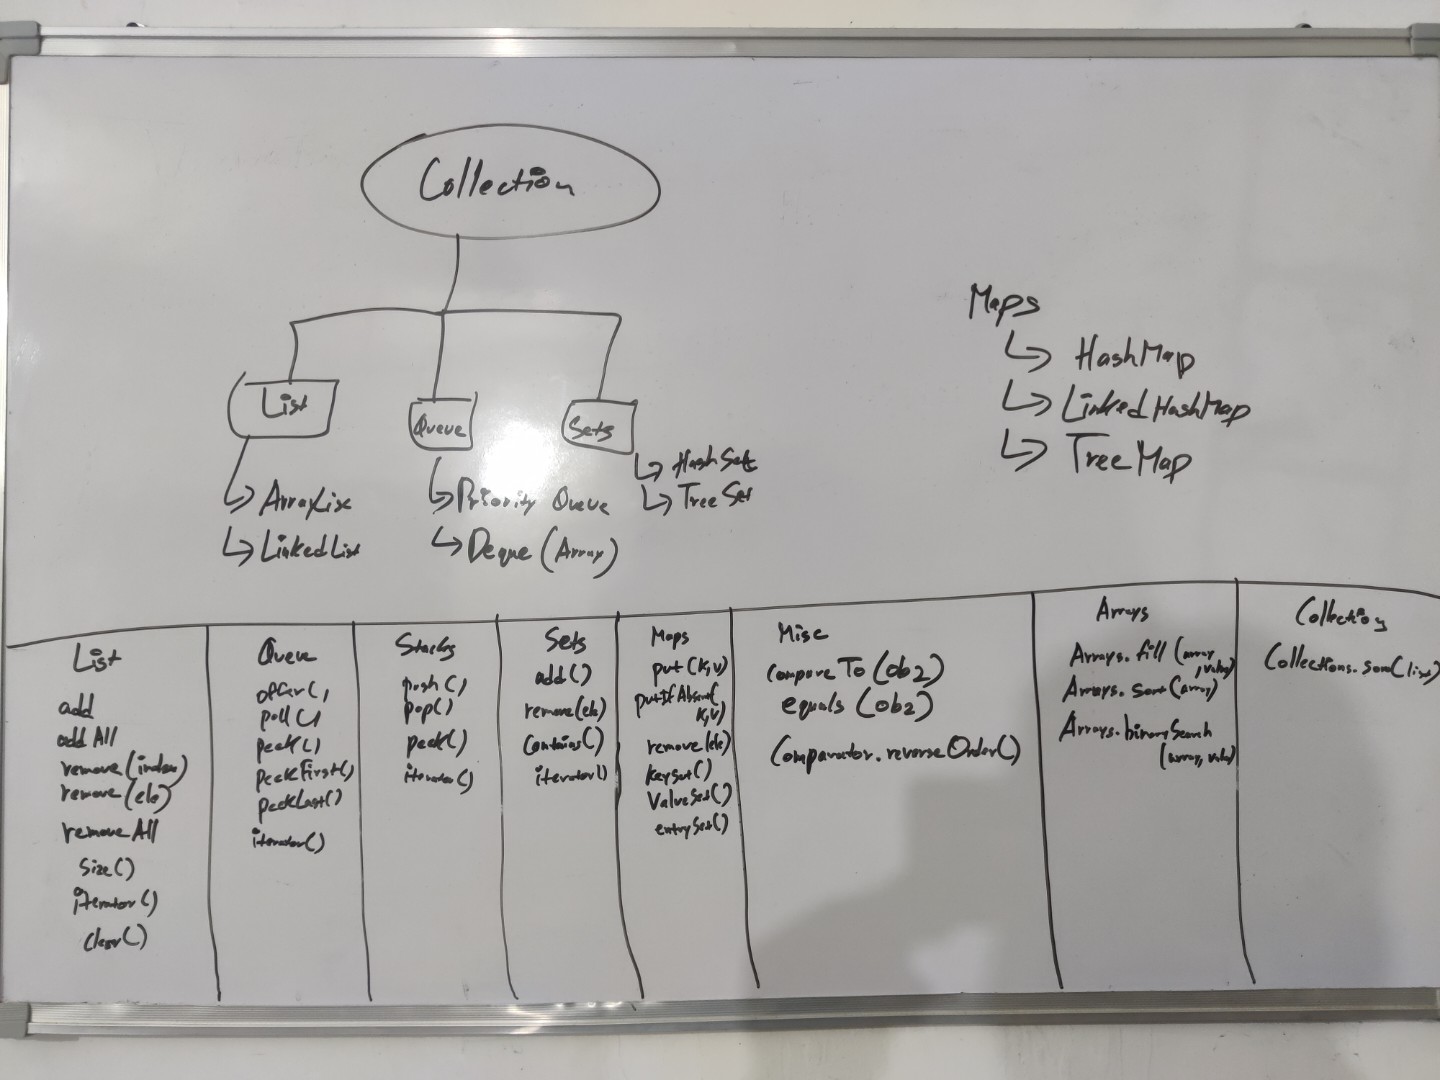 Collection
List
Queue
Sets
ArrayList
LinkedList
Priority Queue
Deque (Array)
HashSet
TreeSet
Maps
HashMap
LinkedHashMap
TreeMap
List
add
addAll
remove(index)
remove(ele)
removeAll
size()
iterator()
clear()
Queue
offer()
poll()
peek()
peekFirst()
peekLast()
iterator()
Stacks
push()
pop()
peek()
iterator()
Sets
add()
remove(ele)
contains()
iterator()
Maps
put(K,V)
putIfAbsent(
K,V)
remove(ele)
keyset()
valueset()
entryset()
Misc
compareTo(ob2)
equals(ob2)
Comparator.reverseOrder()
Arrays
Arrays.fill(array
,value)
Arrays.sort(array)
Arrays.binarySearch
(array, value)
Collections.